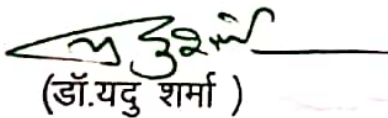 (डॉ.यदु शर्मा )